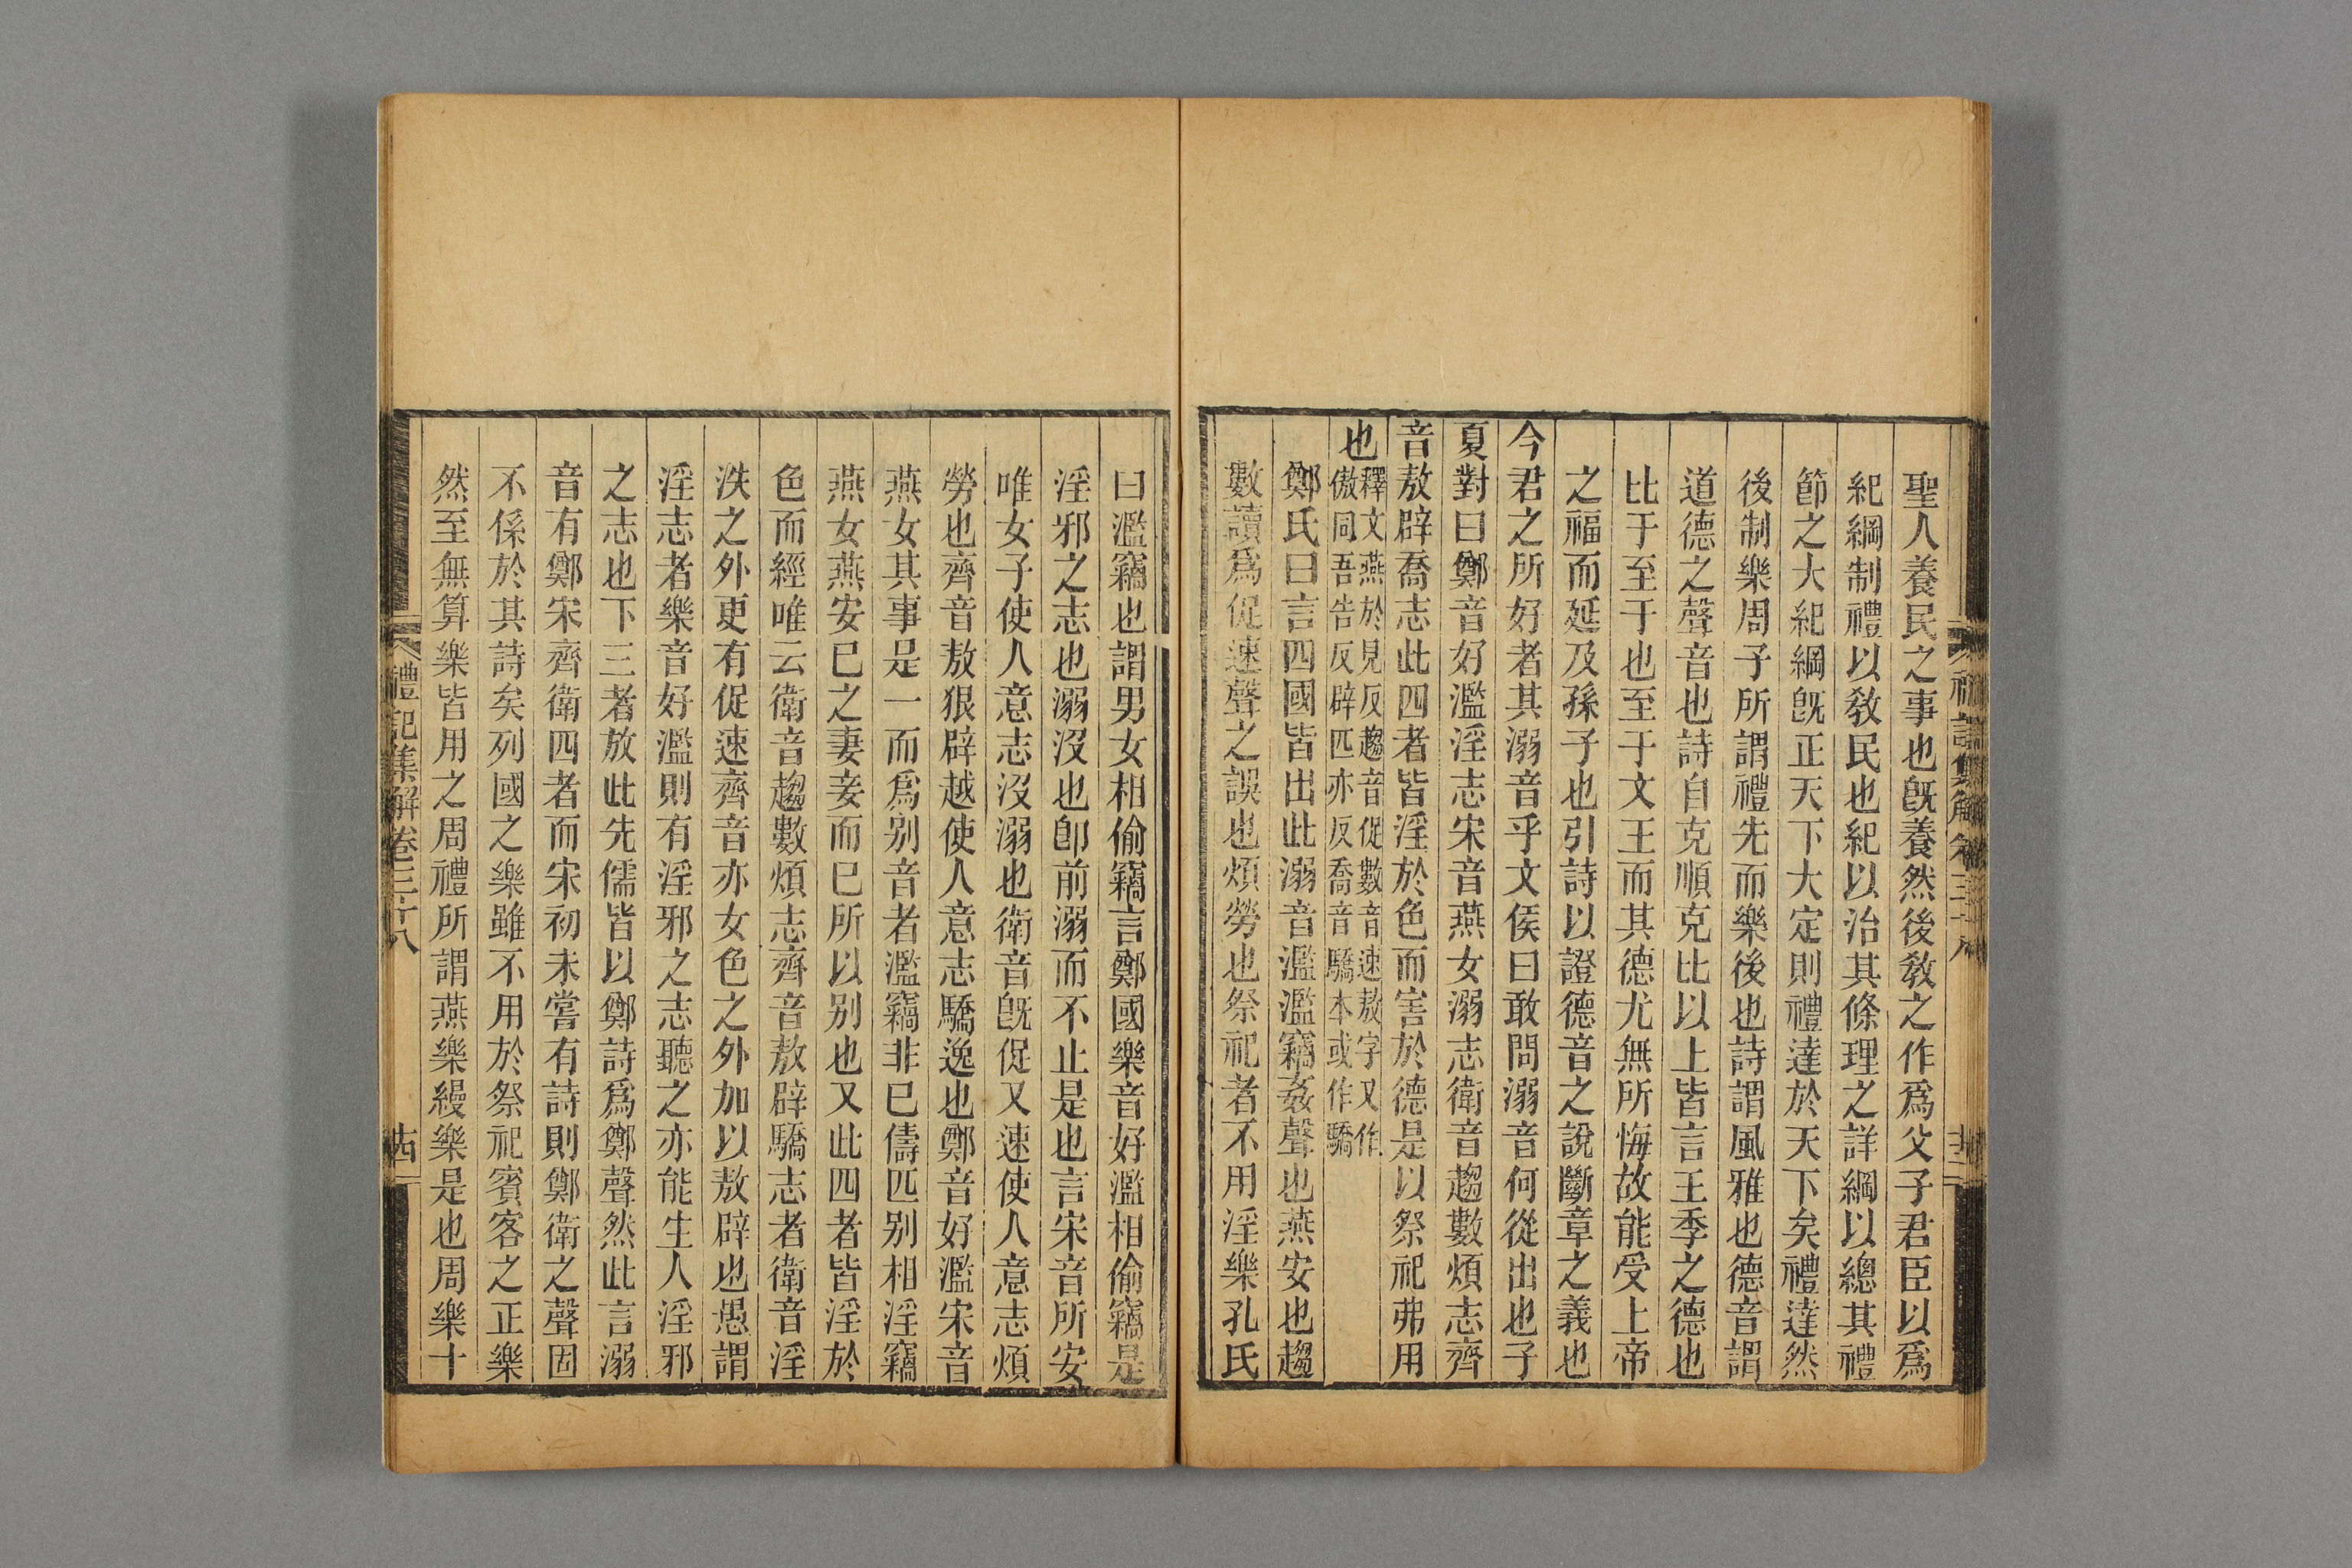 聖人養民之事也旣養然後敎之作爲父子君臣以爲
紀綱制禮以敎民也紀以治其條理之詳綱以總其禮
節之大紀綱旣正天下大定則禮達於天下矣禮達然
後制樂周子所謂禮先而樂後也詩謂風雅也德音謂
道德之聲音也詩自克順克比以上皆言王季之德也
比于至于也至于文王而其德尤無所悔故能受上帝
之福而延及孫子也引詩以證德音之說斷章之義也
今君之所好者其溺音乎文侯曰敢問溺音何從出也子
夏對曰鄭音好濫淫志宋音燕女溺志衛音趨數煩志齊
音敖辟喬志此四者皆淫於色而害於德是以祭祀弗用
也
釋文燕於見反趨音促數音速敖字又作
傲同吾告反辟匹亦反喬音驕本或作驕
鄭氏曰言四國皆出此溺音濫濫竊姦聲也燕安也趨
數讀爲促速聲之誤也煩勞也祭祀者不用淫樂孔氏
曰濫竊也謂男女相偷竊言鄭國樂音好濫相偷竊是
淫邪之志也溺沒也卽前溺而不止是也言宋音所安
唯女子使人意志沒溺也衛音旣促又速使人意志煩
勞也齊音敖狠辟越使人意志驕逸也鄭音好濫宋音
燕女其事是一而爲別音者濫竊非已儔匹別相淫竊
燕女燕安已之妻妾而已所以別也又此四者皆淫於
色而經唯云衛音趨數煩志齊音敖辟驕志者衛音淫
泆之外更有促速齊音亦女色之外加以敖辟也愚謂
淫志者樂音好濫則有淫邪之志聽之亦能生人淫邪
之志也下三者放此先儒皆以鄭詩爲鄭聲然此言溺
音有鄭宋齊衛四者而宋初未嘗有詩則鄭衛之聲固
不係於其詩矣列國之樂雖不用於祭祀賓客之正樂
然至無算樂皆用之周禮所謂燕樂縵樂是也周樂十
禮記集解卷三十八